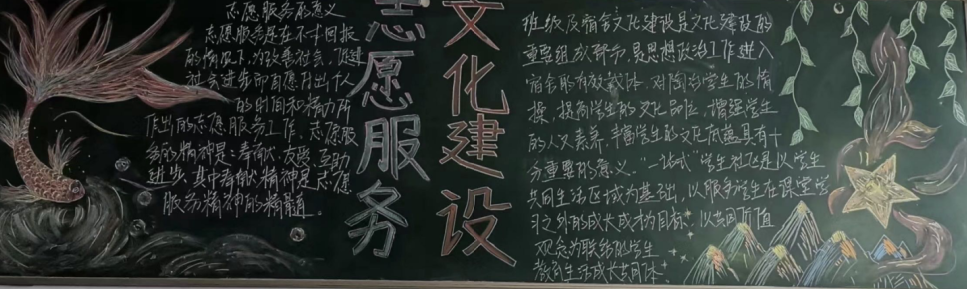 志愿服务的意义
志愿服务是在不求回报
的情况下,为改善社会,促进
社会进步而自愿付出个人
的时间和精力所
作出的志愿服务工作,志愿服
务的精神是:奉献、友爱、互助
进步,其中奉献精神是志愿
服务精神的精髓。
志愿服务
文化建设
班级及宿舍文化建设是文化建设的
重要组成部分,是思想政治工作进入
宿舍的有效载体,对陶冶学生的情
操,提高学生的文化品位,增强学生
的人文素养,丰富学生的文化底蕴具有十
分重要的意义。"一站式"学生社区是以学生
共同生活区域为基础,以服务学生在课堂学
习之外的成长成才为目标,以共同价值
观念为联系的学生
教育生活成长共同体"